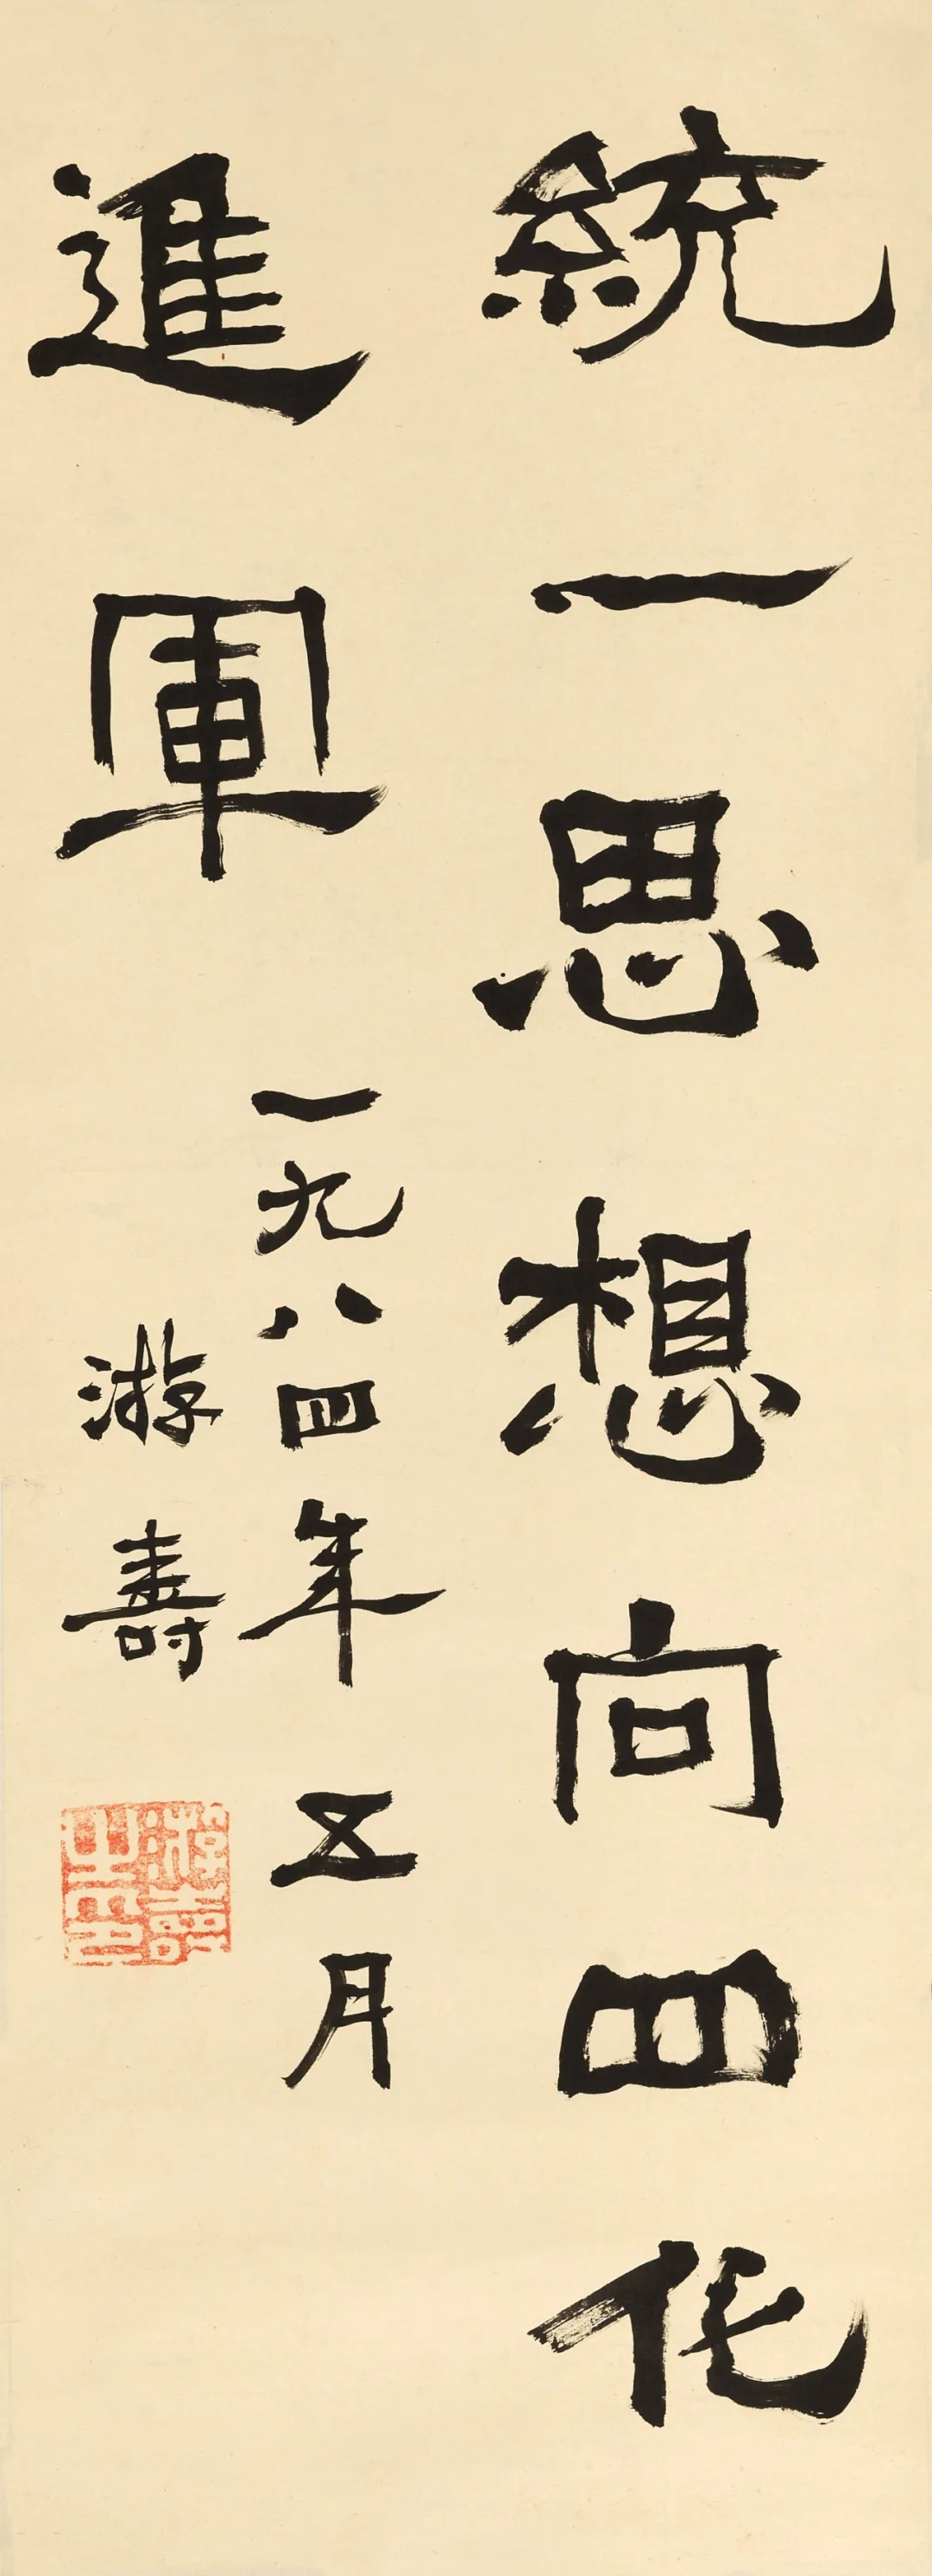 統一思想向四化
進軍
一九八四年五月
游壽
游壽之印